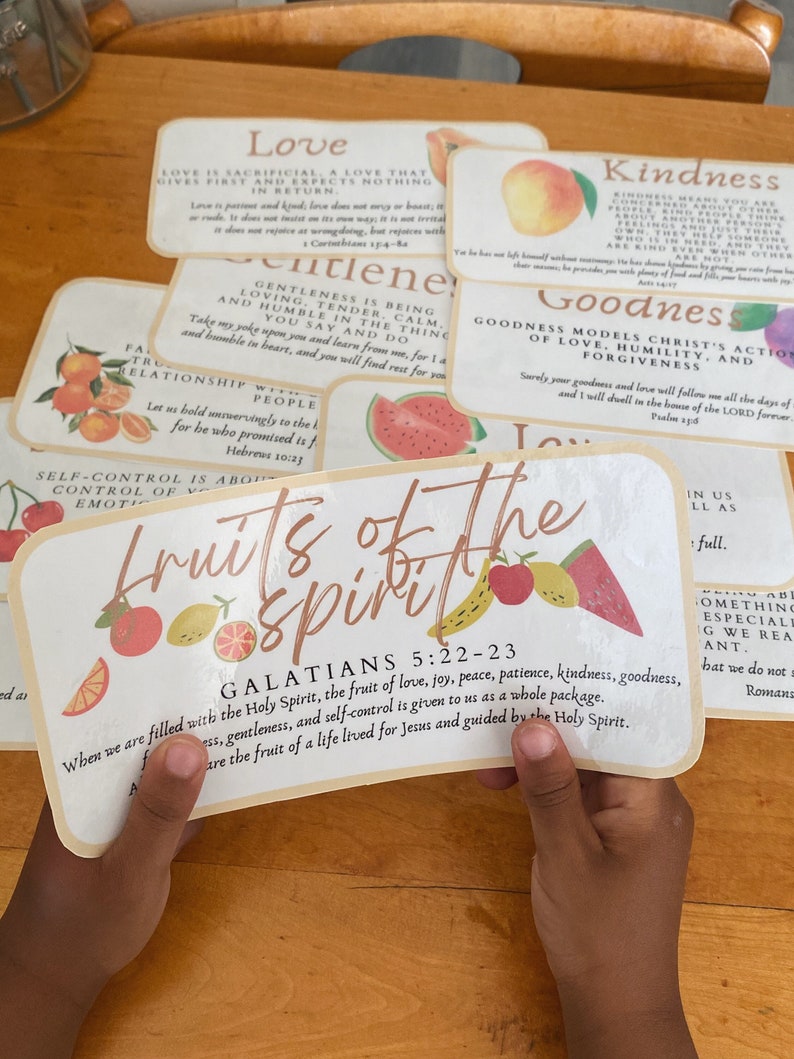 Love
LOVE IS SACRIFICIAL, A LOVE THAT
GIVES FIRST AND EXPECTS NOTHING
IN RETURN.
Love is patient and kind; love does not envy or boast; it
or rude. It does not insist on its own way; it is not
it does not rejoice at wrongdoing, but rejoices
1 Corinthians 13:4-8a
Kindness
KINDNESS MEANS YOU ARE
CONCERNED ABOUT OTHER
PEOPLE, KIND PEOPLE THINK
ABOUT ANOTHER PERSON'S
FEELINGS AND JUST THEIR
OWN, THEY HELP SOMEONE
WHO IS IN NEED, AND THEY
ARE KIND EVEN WHEN OTHERS
ARE NOT.
Yet he has not left himself without testimony: He has shown kindness by giving you rain from
their seasons; he provides you with plenty of food and fills your hearts with joy
Acts 14:17
Gentlenes
GENTLENESS IS BEING
LOVING, TENDER, CALM,
AND HUMBLE IN THE THING
YOU SAY AND DO
Take my yoke upon you and learn from me, for I a
and humble in heart, and you will find rest for you
Goodness
GOODNESS MODELS CHRIST'S ACTION
OF LOVE, HUMILITY, AND
FORGIVENESS
Surely your goodness and love will follow me all the days of
and I will dwell in the house of the LORD forever.
Psalm 23:6
RELATIONSHIP
PEOPLE
Let us hold unswervingly to the
for he who promised is f
Hebrews 10:23
SELF-CONTROL IS ABOU
CONTROL OF
EMOTIO
IN US
LL AS
full.
BEING AB
SOMETHING
ESPECIALL
NG WE REA
ANT.
hat we do not s
Romans
fruits of the
spirit
GALATIANS 5:22-23
When we are filled with the Holy Spirit, the fruit of love, joy, peace, patience, kindness, goodness,
ess, gentleness, and self-control is given to us as a whole package.
are the fruit of a life lived for Jesus and guided by the Holy Spirit.